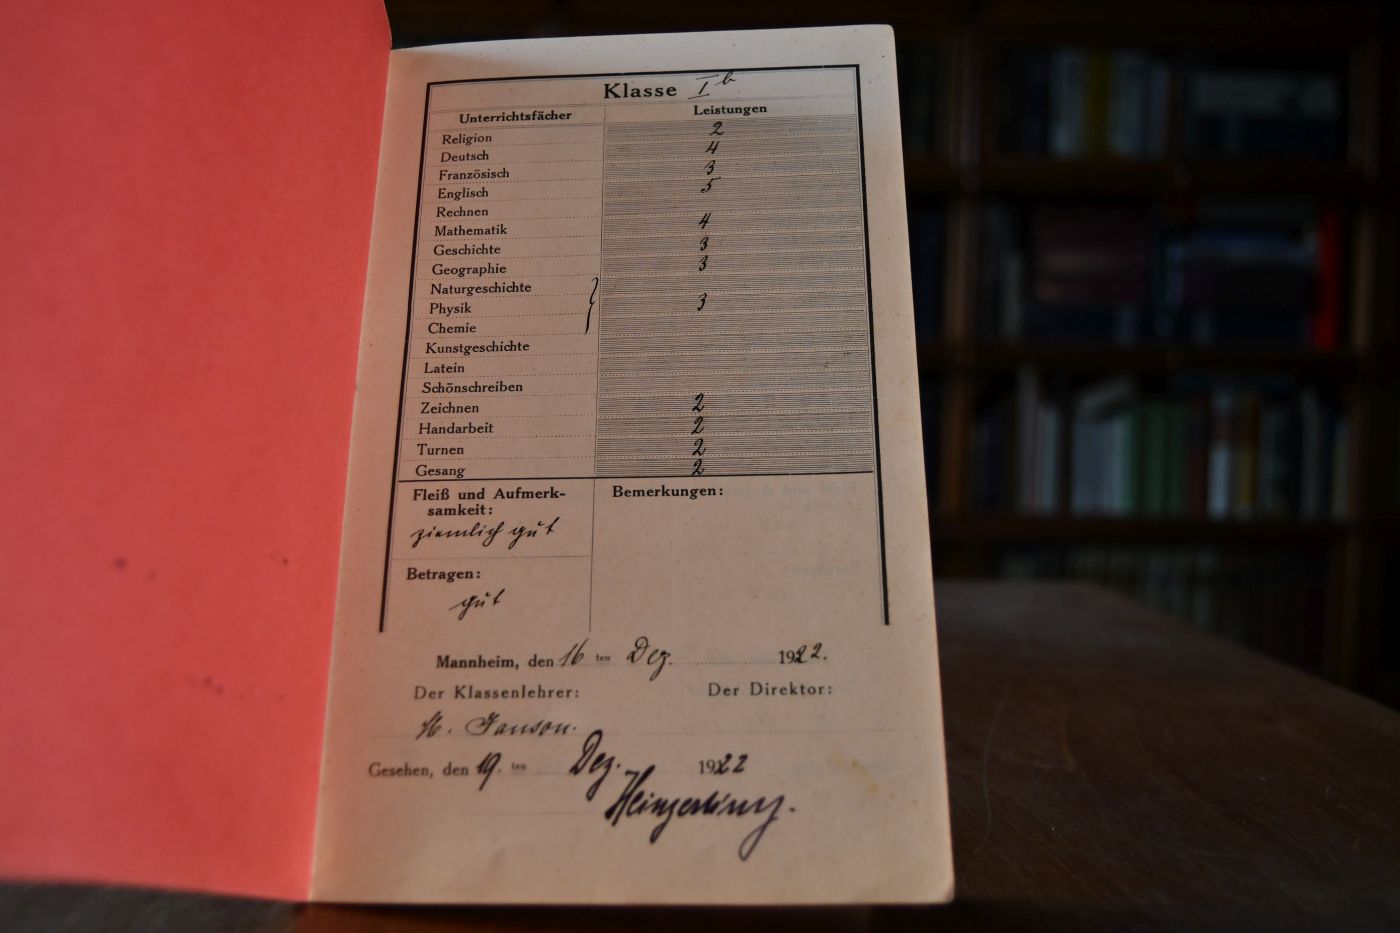 Klasse I b
Unterrichtsfächer Leistungen
Religion 2
Deutsch 4
Französisch 3
Englisch 5
Rechnen
Mathematik 4
Geschichte 3
Geographie 3
Naturgeschichte
Physik 3
Chemie
Kunstgeschichte
Latein
Schönschreiben
Zeichnen 2
Handarbeit 2
Turnen 2
Gesang 2
Fleiß und Aufmerk-
samkeit:
ziemlich gut
Bemerkungen:
Betragen:
gut
Mannheim, den 16 ten Dez. 1922.
Der Klassenlehrer: Der Direktor:
Janson.
Gesehen, den 19. ten Dez. 1922